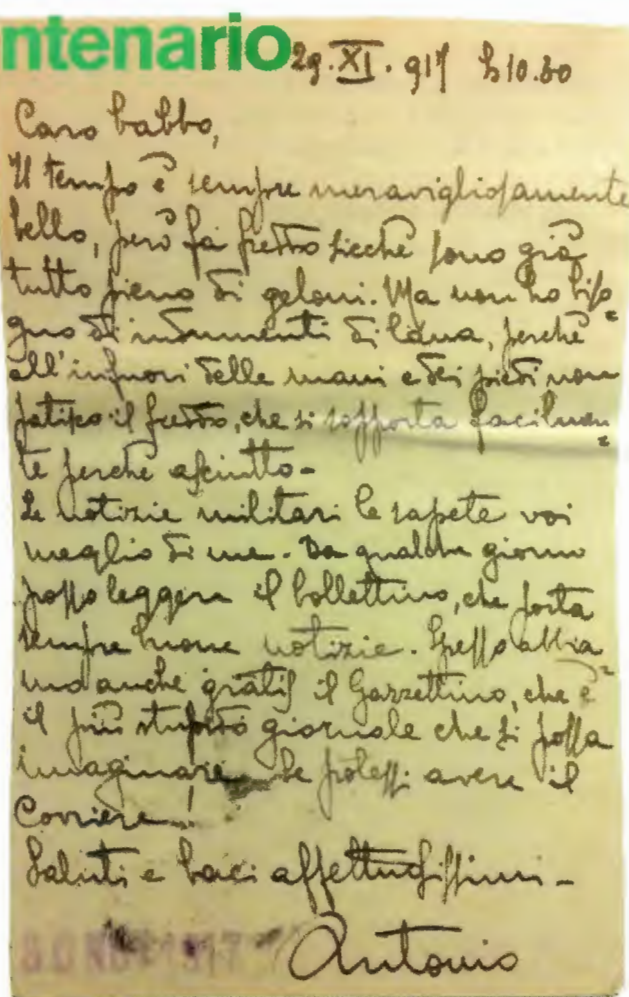 ntenario
29.XI.917 h 10.30
Caro babbo,
Il tempo è sempre meravigliosamente
bello, però fa freddo sicchè sono già
tutto pieno di geloni. Ma non ho biso=
gno di indumenti di lana, perchè
all'infuori delle mani e dei piedi non
patisco il freddo, che si sopporta facilmen=
te perchè asciutto-
Le notizie militari le sapete voi
meglio di me. Da qualche giorno
posso leggere il bollettino, che porta
sempre buone notizie. Spesso abbia=
mo anche gratis il Gazzettino, che è
il più stupido giornale che si possa
imaginare. Se potessi avere il
Corriere!
Saluti e baci affettuosissimi-
Antonio
30 NOV 1917